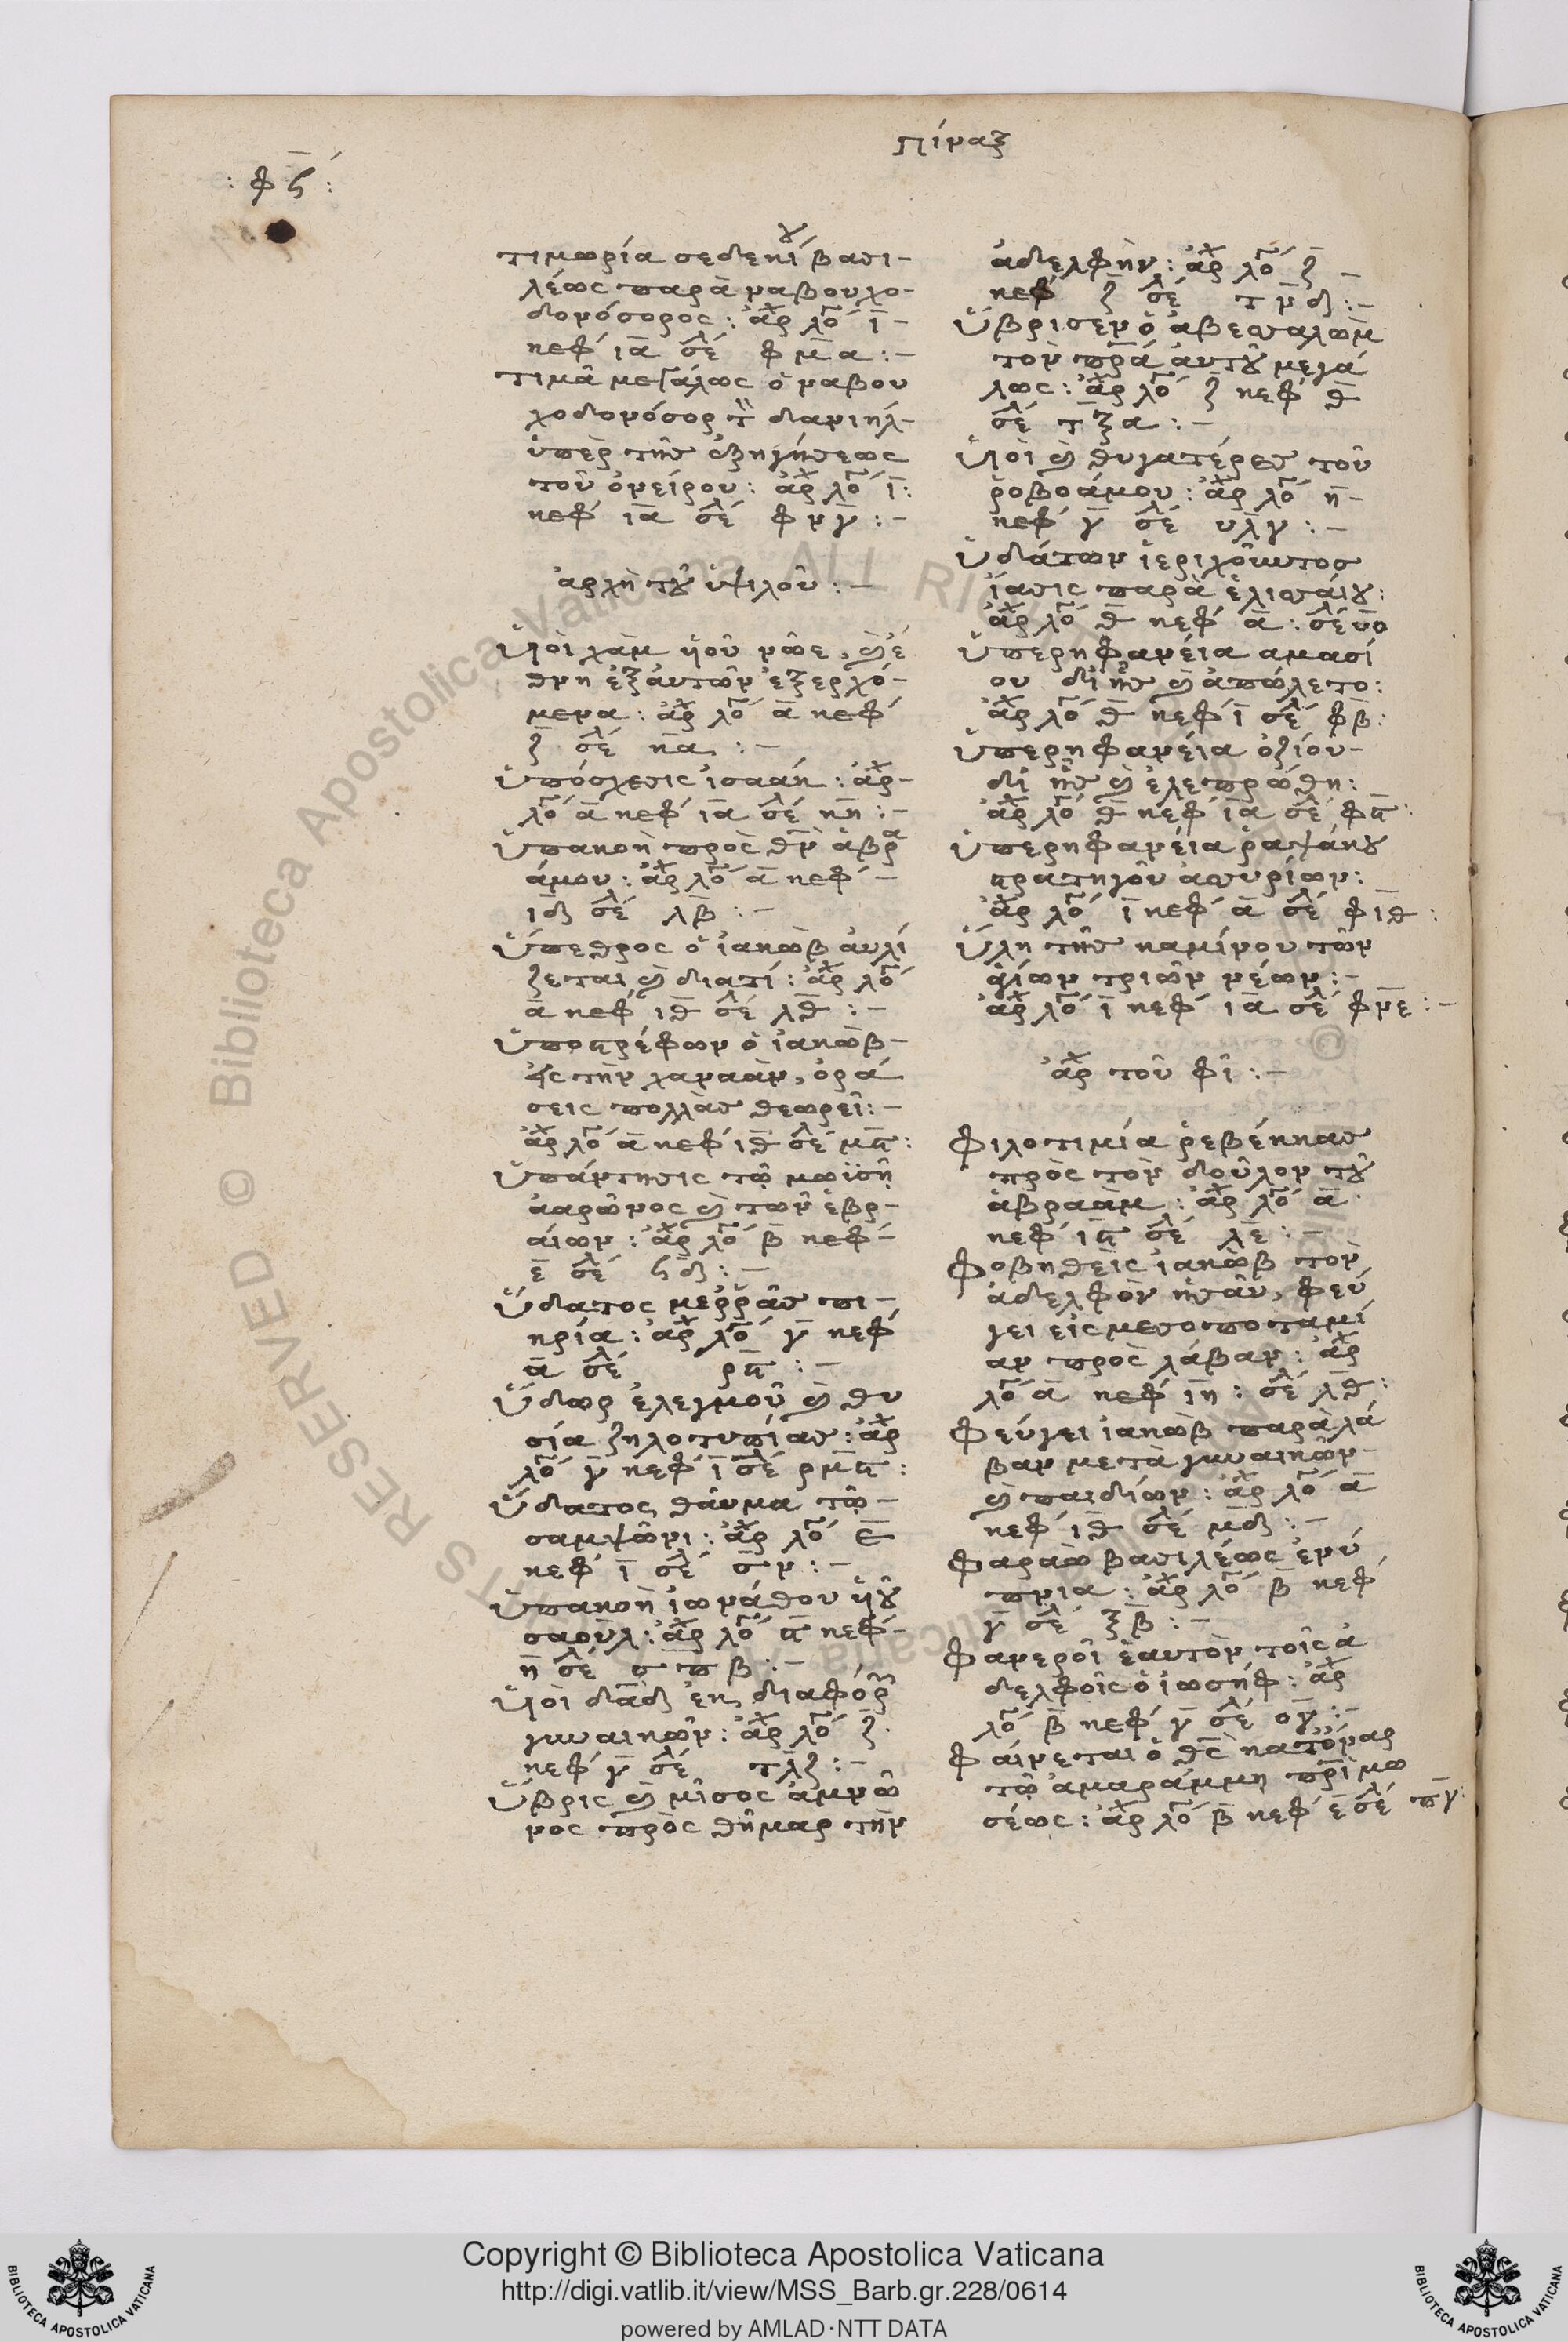 πίναξ
: φϛ :
τιμωρία σεδεκίου βασι-
λέως παρὰ ναβουχο-
δονόσορος: ἀρχ λό ῑ -
κεφ ιᾱ σελ φμ̄α :-
τιμᾶ μεγάλως ὁ ναβου
χοδονόσορ τ̀ δανιήλ-
ὑπὲρ τῆς ἐξηγήσεως
τοῦ ὀνείρου: ἀρχ λό ῑ:
κεφ ιᾱ σελ φνγ̄ :-
ἀρχὴ τοῦ ὑψιλοῦ :-
Ὑιοὶ χὰμ ὑιοῦ νῶε, καὶ ἔ
θνη ἐξ ἀυτῶν ἐξερχό-
μενα: ἀρχ λό ᾱ κεφ
ζ̄ σελ κᾱ :-
Ὑπόσχεσις ἰσαάκ: ἀρχ-
λό ᾱ κεφ ιᾱ σελ κη̄ :-
Ὑπακοὴ πρὸς θν̄ ἀβρα
άμου: ἀρχ λό ᾱ κεφ -
ιδ σελ λβ̄ :-
Ὕπεθρος ὁ ἰακὼβ ἀυλί
ζεται καὶ διατί: ἀρχ λό
ᾱ κεφ ιθ̄ σελ λθ̄ :-
Ὑποστρέφων ὁ ἰακὼβ-
εἰς τὴν χαναὰν, ὁρά
σεις πολλὰς θεωρεῖ:-
ἀρχ λό ᾱ κεφ ιθ̄ σελ μϛ̄:
Ὑπάντησις τῷ μωϊσῇ
ἀαρῶνος καὶ τῶν ἑβρ-
αίων: ἀρχ λό β̄ κεφ-
ε̄ σελ ϟδ :-
Ὕδατος μερρᾶς πι-
κρία: ἀρχ λό γ̄ κεφ
ᾱ σελ ρϛ̄ :-
Ὕδωρ ἐλεγμοῦ καὶ θυ
σία ζηλοτυπίας: ἀρχ
λό γ̄ κεφ ῑ σελ ρμϛ̄ :
Ὕδατος θάυμα τῷ-
σαμψῶνι: ἀρχ λό ε̄
κεφ ῑ σελ σν :-
Ὑπακοὴ ἰωνάθου ὑιοῦ
σαοὺλ: ἀρχ λό ϛ̄ κεφ-
η̄ σελ σπβ :-
Ὑιοὶ δᾱδ ἐκ διαφόρ
γυναικῶν: ἀρχ λό ζ̄.
κεφ γ̄ σελ τλζ :-
Ὕβρις καὶ μῖσος ἀμνῶ
νος πρὸς θήμαρ τὴν
ἀδελφὴν: ἀρχ λό ζ̄ -
κεφ ζ̄ σελ τν̄δ :-
Ὕβρισεν ὁ ἀβεσσαλὼμ
τὸν πρ̄ά ἀυτοῦ μεγά
λως: ἀρχ λό ζ̄ κεφ θ̄
σελ τξ̄α :-
Ὑιοὶ καὶ θυγατέρες τοῦ
ῥοβοάμου: ἀρχ λό η̄-
κεφ γ̄ σελ υλγ :-
Ὑδάτων ἱεριχοῦντος
ἴασις παρὰ ἑλισσάιου:
ἀρχ λό θ̄ κεφ ᾱ: σελ υο
Ὑπερηφανέια αμασί
ου δι ἧς καὶ ἀπώλετο:
ἀρχ λό θ̄ κεφ ῑ σελ φβ̄:
Ὑπερηφανέια ὀζίου-
δι ἧς καὶ ἐλεπρώθη:
ἀρχ λό θ̄ κεφ ιᾱ σελ φϛ̄:
Ὑπερηφανέια ῥαψάκου
στρατηγοῦ ἀσσυρίων:
ἀρχ λό ῑ κεφ ᾱ σελ φιθ̄ :
Ὕλη τῆς καμίνου τῶν
ἁγίων τριῶν νέων:-
ἀρχ λό ῑ κεφ ιᾱ σελ φν̄ε :-
ἀρχ τοῦ φῖ :-
Φιλοτιμία ῥεβέκκας
πρὸς τὸν δοῦλον τοῦ
ἀβραὰμ: ἀρχ λό ᾱ
κεφ ιϛ̄ σελ λε̄ :-
Φοβηθεὶς ἰακὼβ τὸν
ἀδελφὸν ἡσᾶυ, φεύ
γει εἰς μεσοποταμί
αν πρὸς λάβαν: ἀρχ
λό ᾱ κεφ ιη̄: σελ λθ̄:
Φεύγει ἰακὼβ παρὰ λά
βαν μετὰ γυναικῶν-
καὶ παιδίων: ἀρχ λό ᾱ
κεφ ιθ̄ σελ μδ :-
Φαραὼ βασιλέως ἐνύ
πνια: ἀρχ λό β̄ κεφ
γ̄ σελ ξβ̄ :-
Φανεροῖ ἑαυτὸν τοῖς ἀ
δελφοῖς ὁ ἰωσήφ: ἀρχ
λό β̄ κεφ γ̄ σελ ογ̄ :-
Φάινεται ὁ θς̄ κατ' ὄναρ
τῷ ἀμαράμμη πρ̄ὶ μω
σέως: ἀρχ λό β̄ κεφ ε̄ σελ πγ̄:
Biblioteca Apostolica Vaticana
ALL RIGHTS RESERVED ©
Copyright © Biblioteca Apostolica Vaticana
http://digi.vatlib.it/view/MSS_Barb.gr.228/0614
powered by AMLAD·NTT DATA
BIBLIOTECA APOSTOLICA VATICANA
BIBLIOTECA APOSTOLICA VATICANA